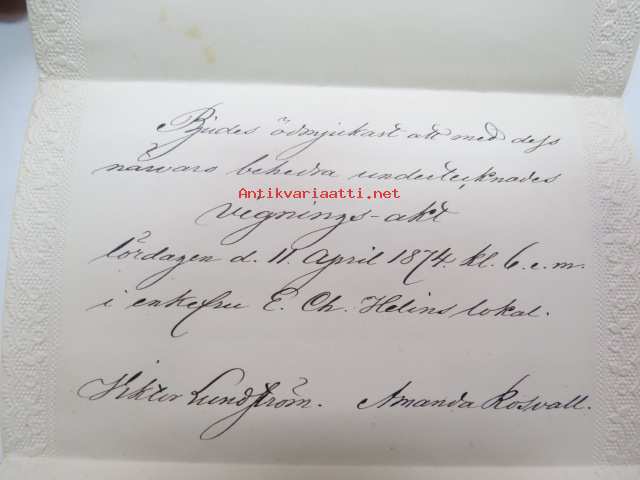 Bjudes ödmjukast att med dess
närvaro behedra undertecknades
Antikvariaatti.net
vegnings-akt
lördagen d. 11 April 1874. kl. 6. e. m.
i enkefru E. Ch. Helins lokal.
Viktor Lundström. Amanda Rosvall.